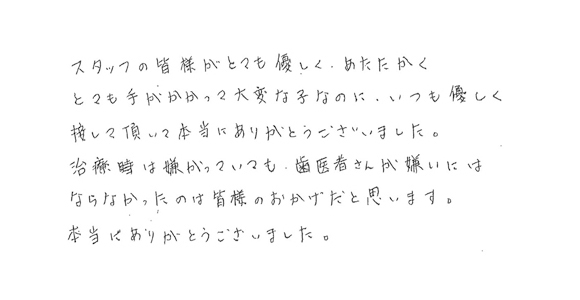 スタッフの皆様がとても優しく、あたたかく
とても手がかかって大変な子なのに、いつも優しく
接して頂いて本当にありがとうございました。
治療時は嫌がっていても、歯医者さんが嫌いには
ならなかったのは皆様のおかげだと思います。
本当にありがとうございました。